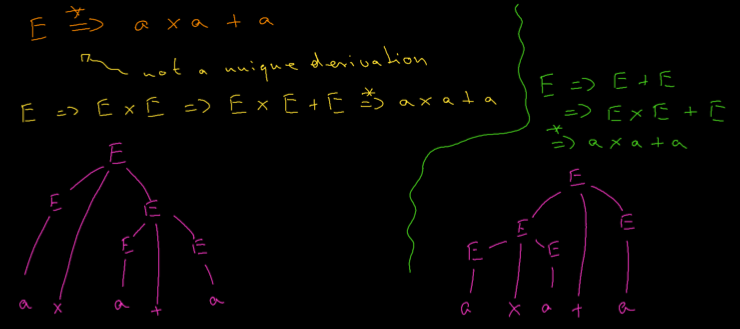 E *⇒ a x a + a
not a unique derivation
E => E x E => E x E + E *⇒ a x a + a
E => E + E
=> E x E + E
*⇒ a x a + a
E
E E
E E
a x a + a
E
E E
E E
a x a + a